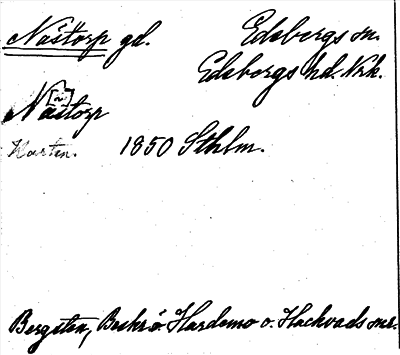 Nästorp gd. Edsbergs sn.
Edsbergs hd. Nrk.
[~]
Nästorp
Karten. 1850 Sthlm.
Bergsten, Beskr. ö. Hardemo o. Hackvads snr.